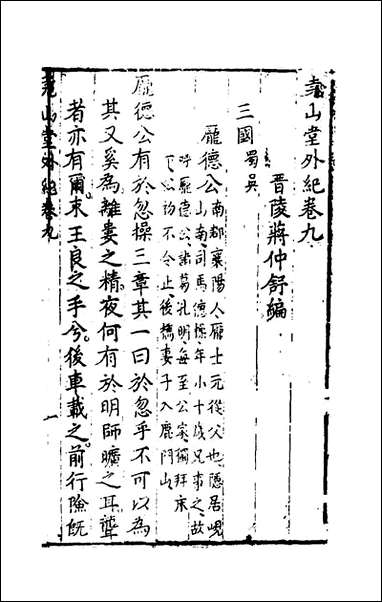 堯山堂外紀卷九
晋陵蔣仲舒編
三國蜀吳
龐德公南郡襄陽人龐士元從父也隱居峴
山南司馬德操年小十歲兄事之故
呼龐德公諸葛孔明每至公家獨拜床
下公初不令止後攜妻子入鹿門山
龐德公有於忽操三章其一曰於忽乎不可以為
其又奚為離婁之精夜何有於明師曠之耳聾
者亦有爾束王良之手兮後車載之前行險既
堯山堂外紀卷九
一